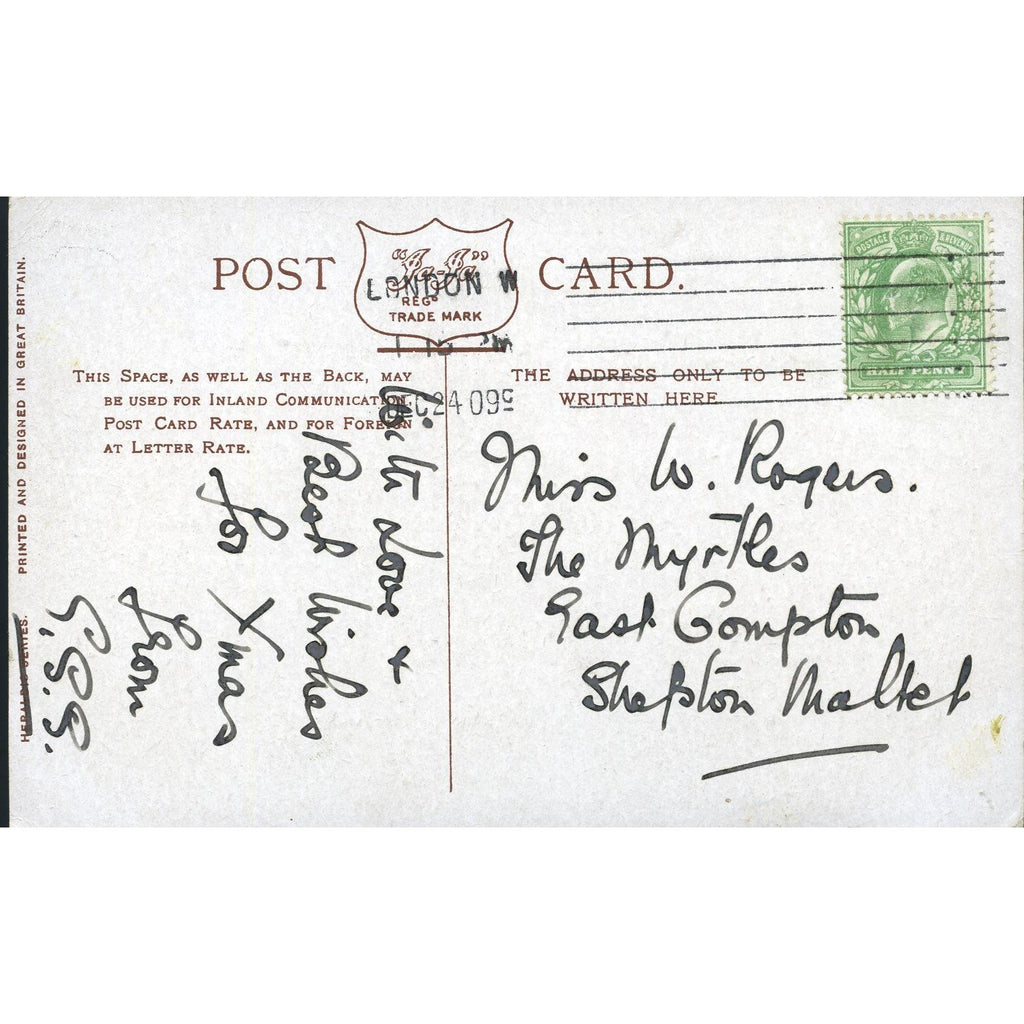 POST CARD.
"Ja-Ja"
REGD
TRADE MARK
LONDON W
DEC 24 09
POSTAGE & REVENUE
HALF PENNY
THIS SPACE, AS WELL AS THE BACK, MAY
BE USED FOR INLAND COMMUNICATION,
POST CARD RATE, AND FOR FOREIGN
AT LETTER RATE.
THE ADDRESS ONLY TO BE
WRITTEN HERE
With love &
Best Wishes
for Xmas
from
G.S.S.
Miss W. Rogers.
The Myrtles
East Compton
Shepton Mallet
HERALDIC SERIES. PRINTED AND DESIGNED IN GREAT BRITAIN.